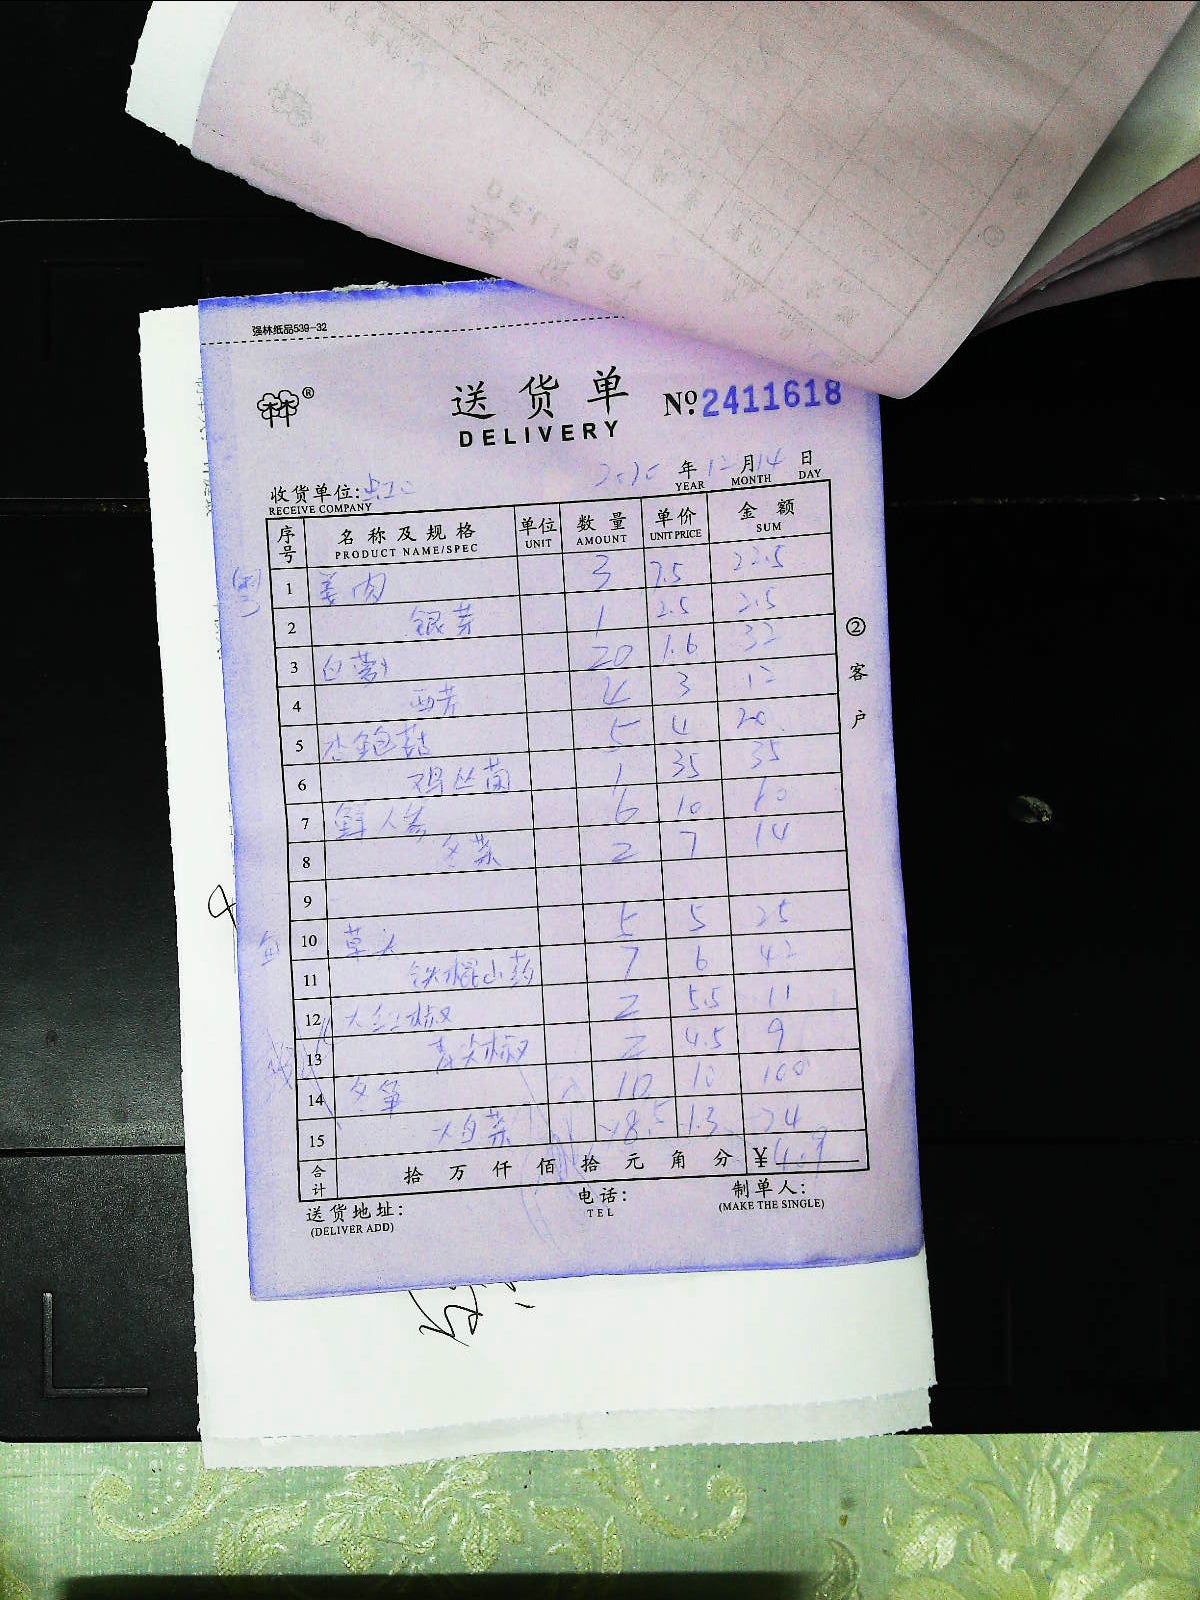 强林纸品539-32
林®
送货单 Nº.2411618
DELIVERY
收货单位: 年12月14日
RECEIVE COMPANY YEAR MONTH DAY
序号 名称及规格 单位 数量 单价 金额
PRODUCT NAME/SPEC UNIT AMOUNT UNIT PRICE SUM
1 姜肉 3 7.5 22.5
2 银芽 1 2.5 2.5
3 白萝卜 20 1.6 32
4 西芹 4 3 12
5 杏鲍菇 5 4 20
6 鸡丛菌 1 35 35
7 鲜人参 6 10 60
8 冬菜 2 7 14
9
10 草头 5 5 25
11 铁棍山药 7 6 42
12 大红椒 2 5.5 11
13 青尖椒 2 4.5 9
14 冬笋 10 10 100
15 白菜 1.3 24
合计 拾万仟佰拾元角分 ¥
送货地址: 电话: 制单人:
(DELIVER ADD) TEL (MAKE THE SINGLE)
②客户